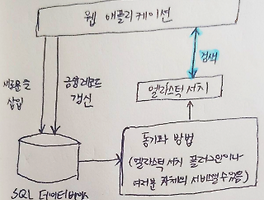 웹 애플리케이션
검색
새로운 줄
삽입
금융 레코드
갱신
엘라스틱 서치
동기화 방법
(엘라스틱 서치 플러그인이나
여러분 자체의 서비스일 수 있음)
SQL 데이터베이스